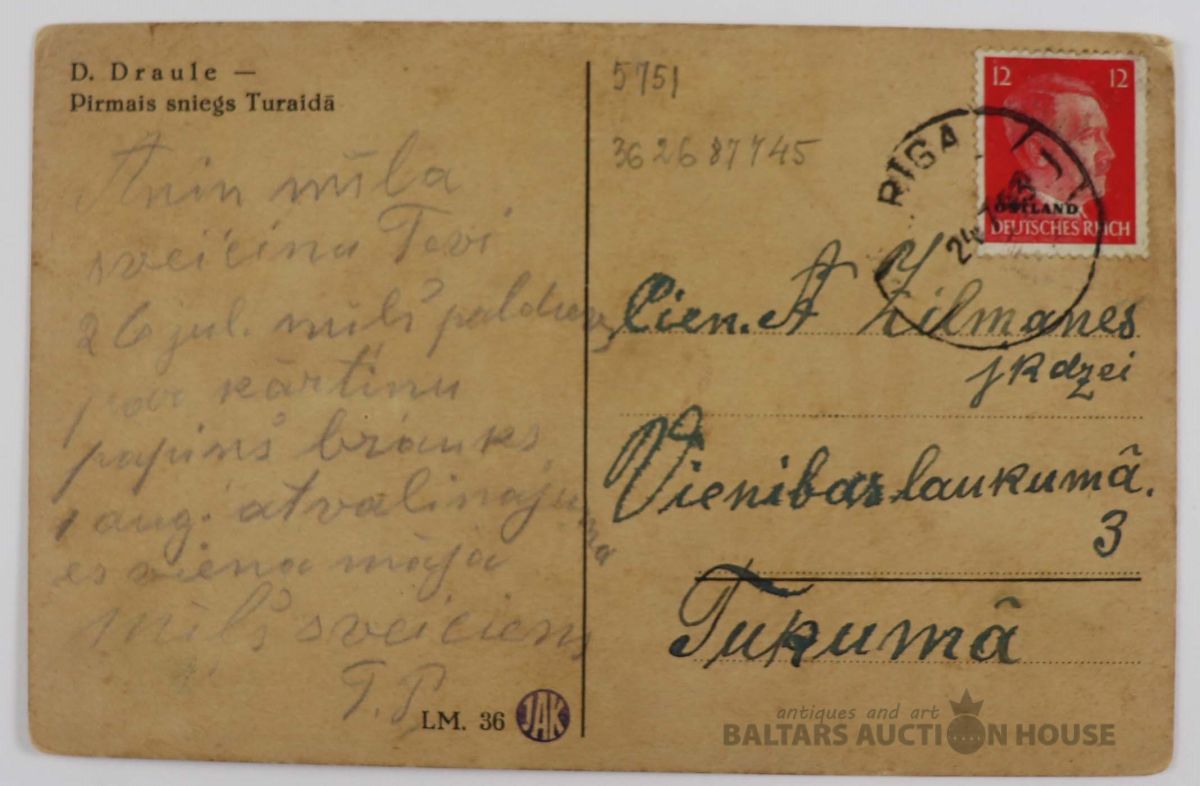 D. Draule —
Pirmais sniegs Turaidā
Anin mīļa
sveicina Tevi
26 jul. mīļš paldies
par kārtiņu
papiņš brauks
1 aug. atvaļinājumā
es viena mājā
Mīļš sveiciens
T.P.
LM. 36
JAK
5751
3626 87745
12 12
OSTLAND
DEUTSCHES REICH
RĪGA
24
Cien. A Zilmanes
jkdzei
Vienibas laukumā.
3
Tukumā
antiques and art
BALTARS AUCTION HOUSE